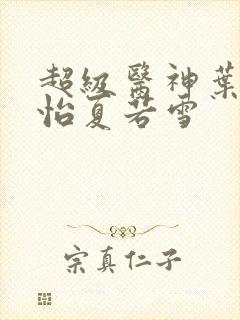 超級醫神葉
怡夏若雪
宗真仁子